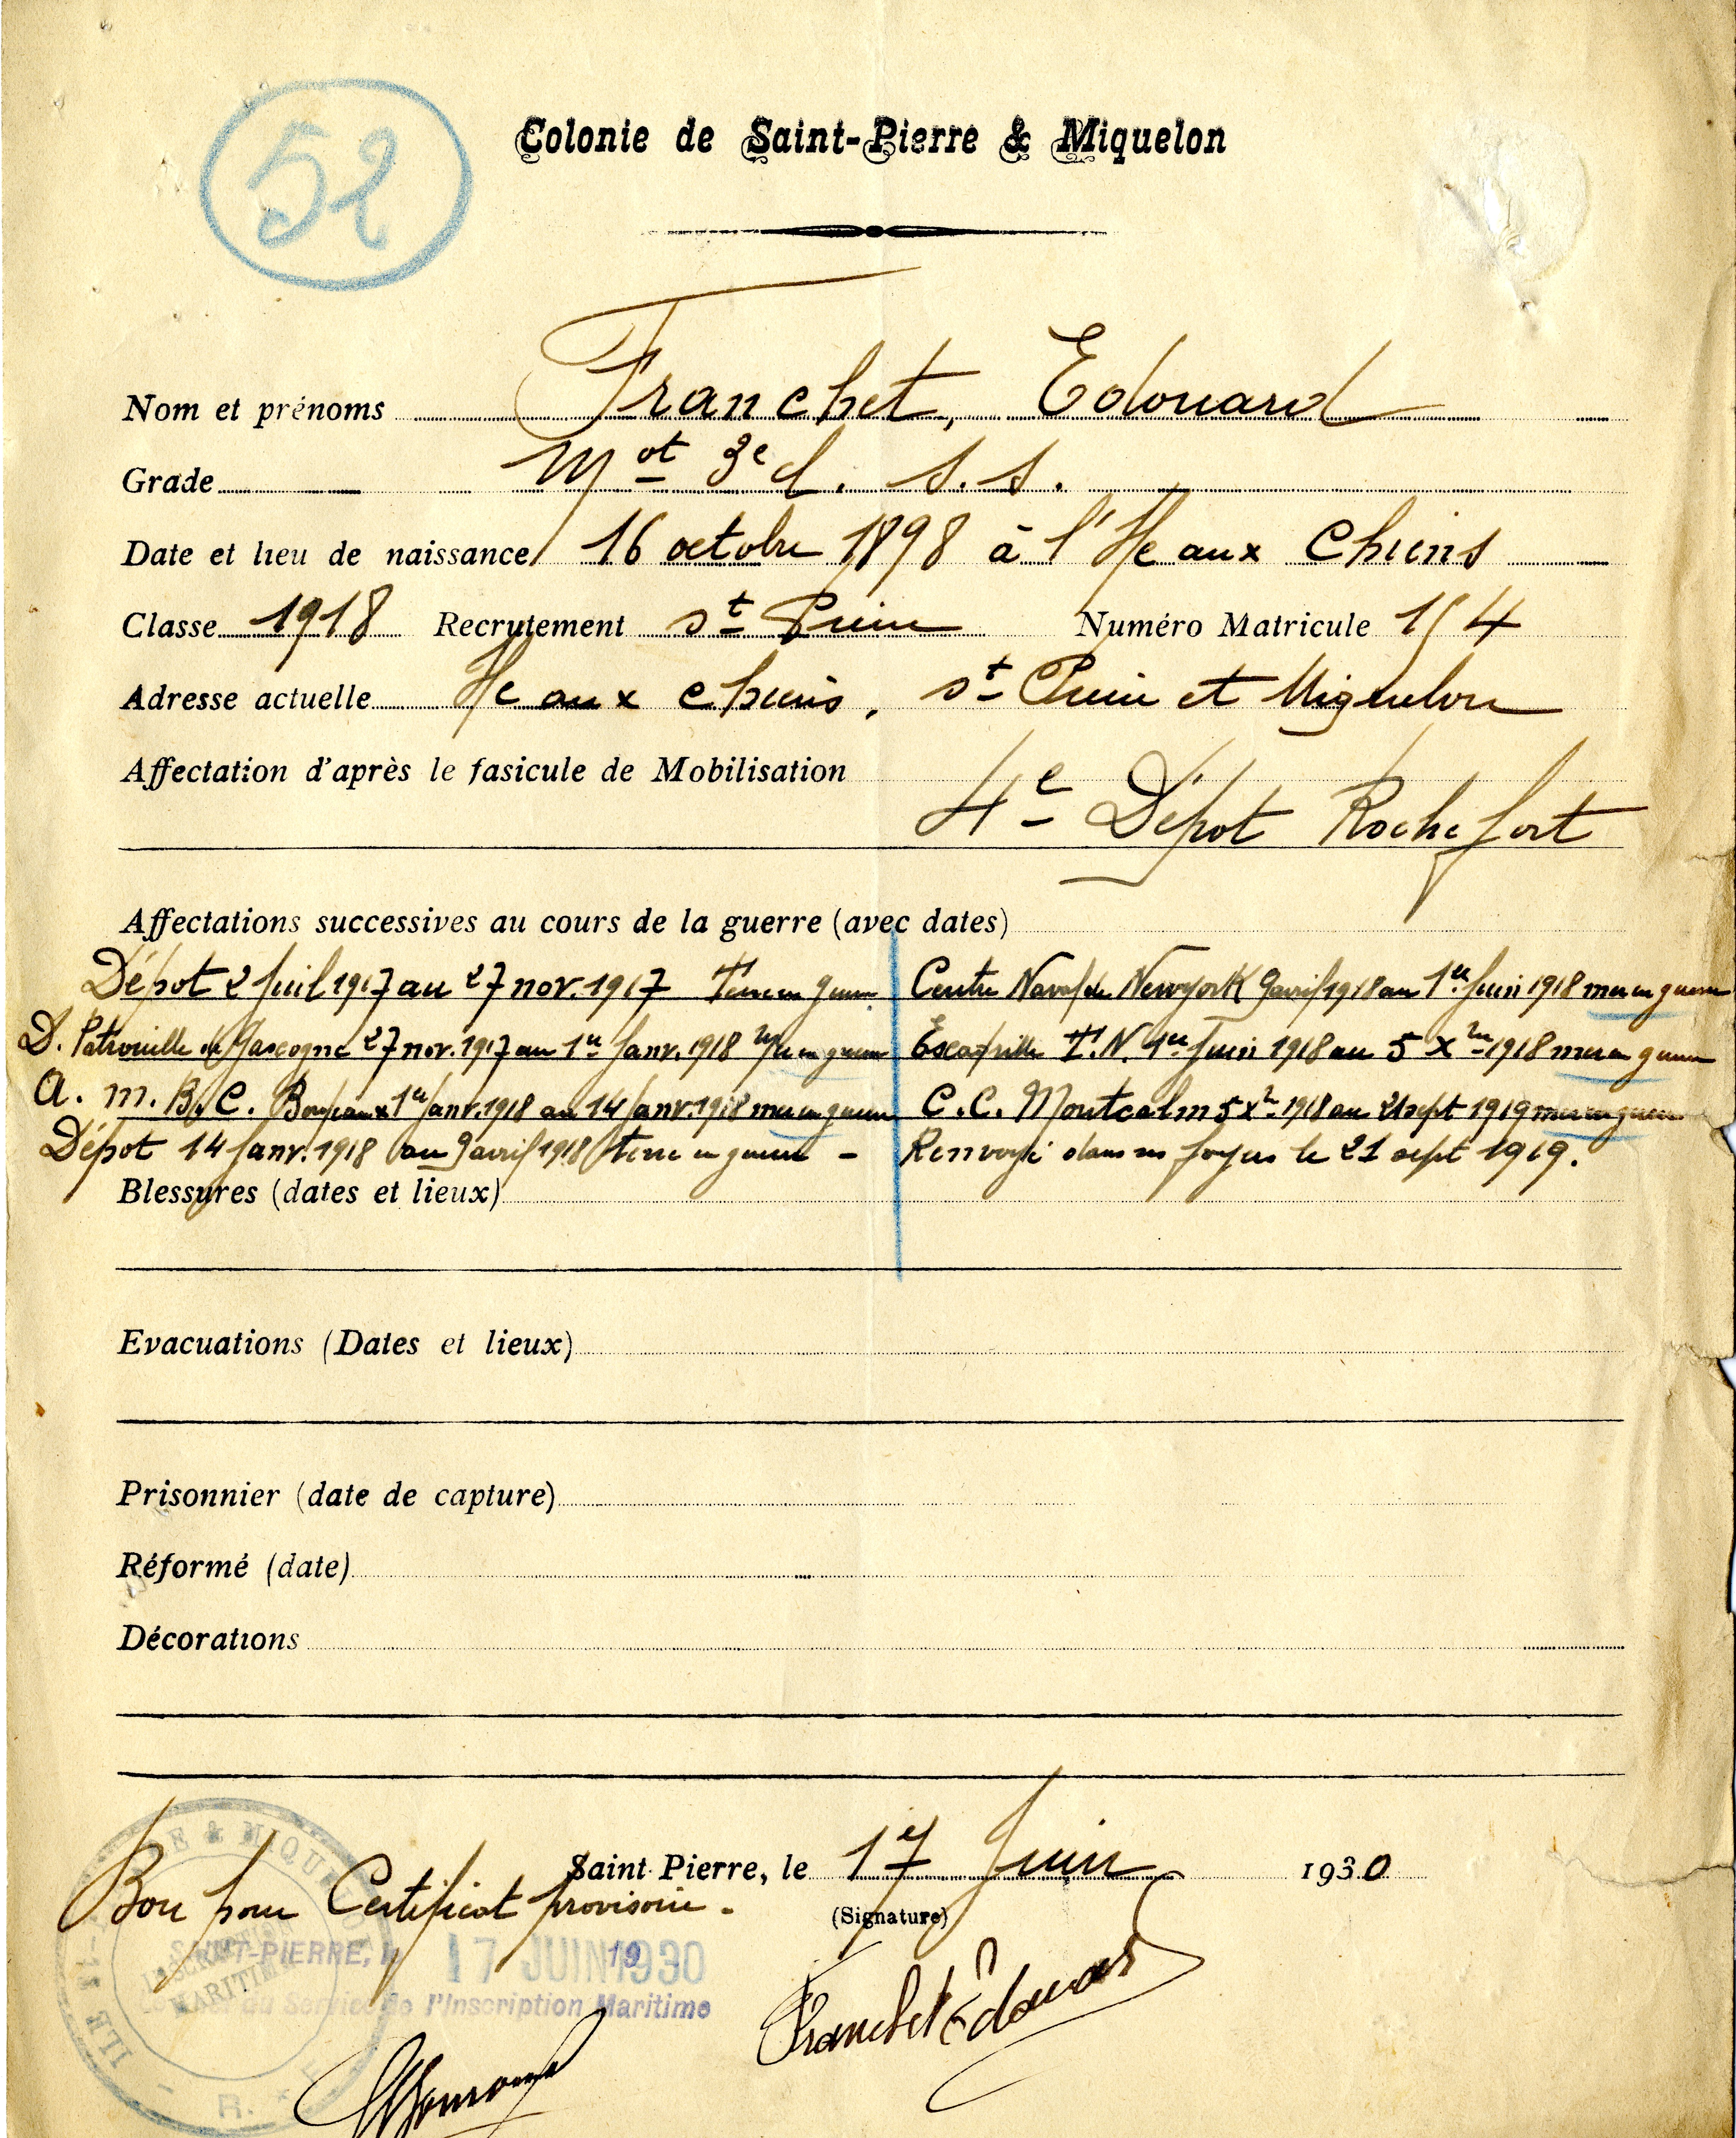 52
Colonie de Saint-Pierre & Miquelon
Nom et prénoms Franchet, Edouard
Grade Mot 3e cl. s.s.
Date et lieu de naissance 16 octobre 1898 à l'Ile aux Chiens
Classe 1918 Recrutement St Pierre Numéro Matricule 154
Adresse actuelle Ile aux Chiens, St Pierre et Miquelon
Affectation d'après le fasicule de Mobilisation
4e Dépot Rochefort
Affectations successives au cours de la guerre (avec dates)
Dépot 2 Juil 1917 au 27 nov. 1917 Terre en guerre
D. Patrouille de Gascogne 27 nov. 1917 au 1er Janv. 1918 Mer en guerre
A. M. B. C. Bordeaux 1er Janv. 1918 au 14 Janv. 1918 mer en guerre
Dépot 14 Janv. 1918 au 9 avril 1918 terre en guerre -
Centre Naval de Newyork 9 avril 1918 au 1er Juin 1918 mer en guerre
Escadrille T.N. 1er Juin 1918 au 5 Xbre 1918 mer en guerre
C.C. Montcalm 5 Xbre 1918 au 21 sept 1919 mer en guerre
Renvoyé dans ses foyers le 21 sept 1919.
Blessures (dates et lieux)
Evacuations (Dates et lieux)
Prisonnier (date de capture)
Réformé (date)
Décorations
Saint-Pierre, le 17 Juin 1930
Bon pour Certificat provisoire.
(Signature)
SAINT-PIERRE, le 17 JUIN 1930
du Service de l'Inscription Maritime
Franchet Edouard
& MIQUELON
INSCRIPTION
MARITIME
R. F.